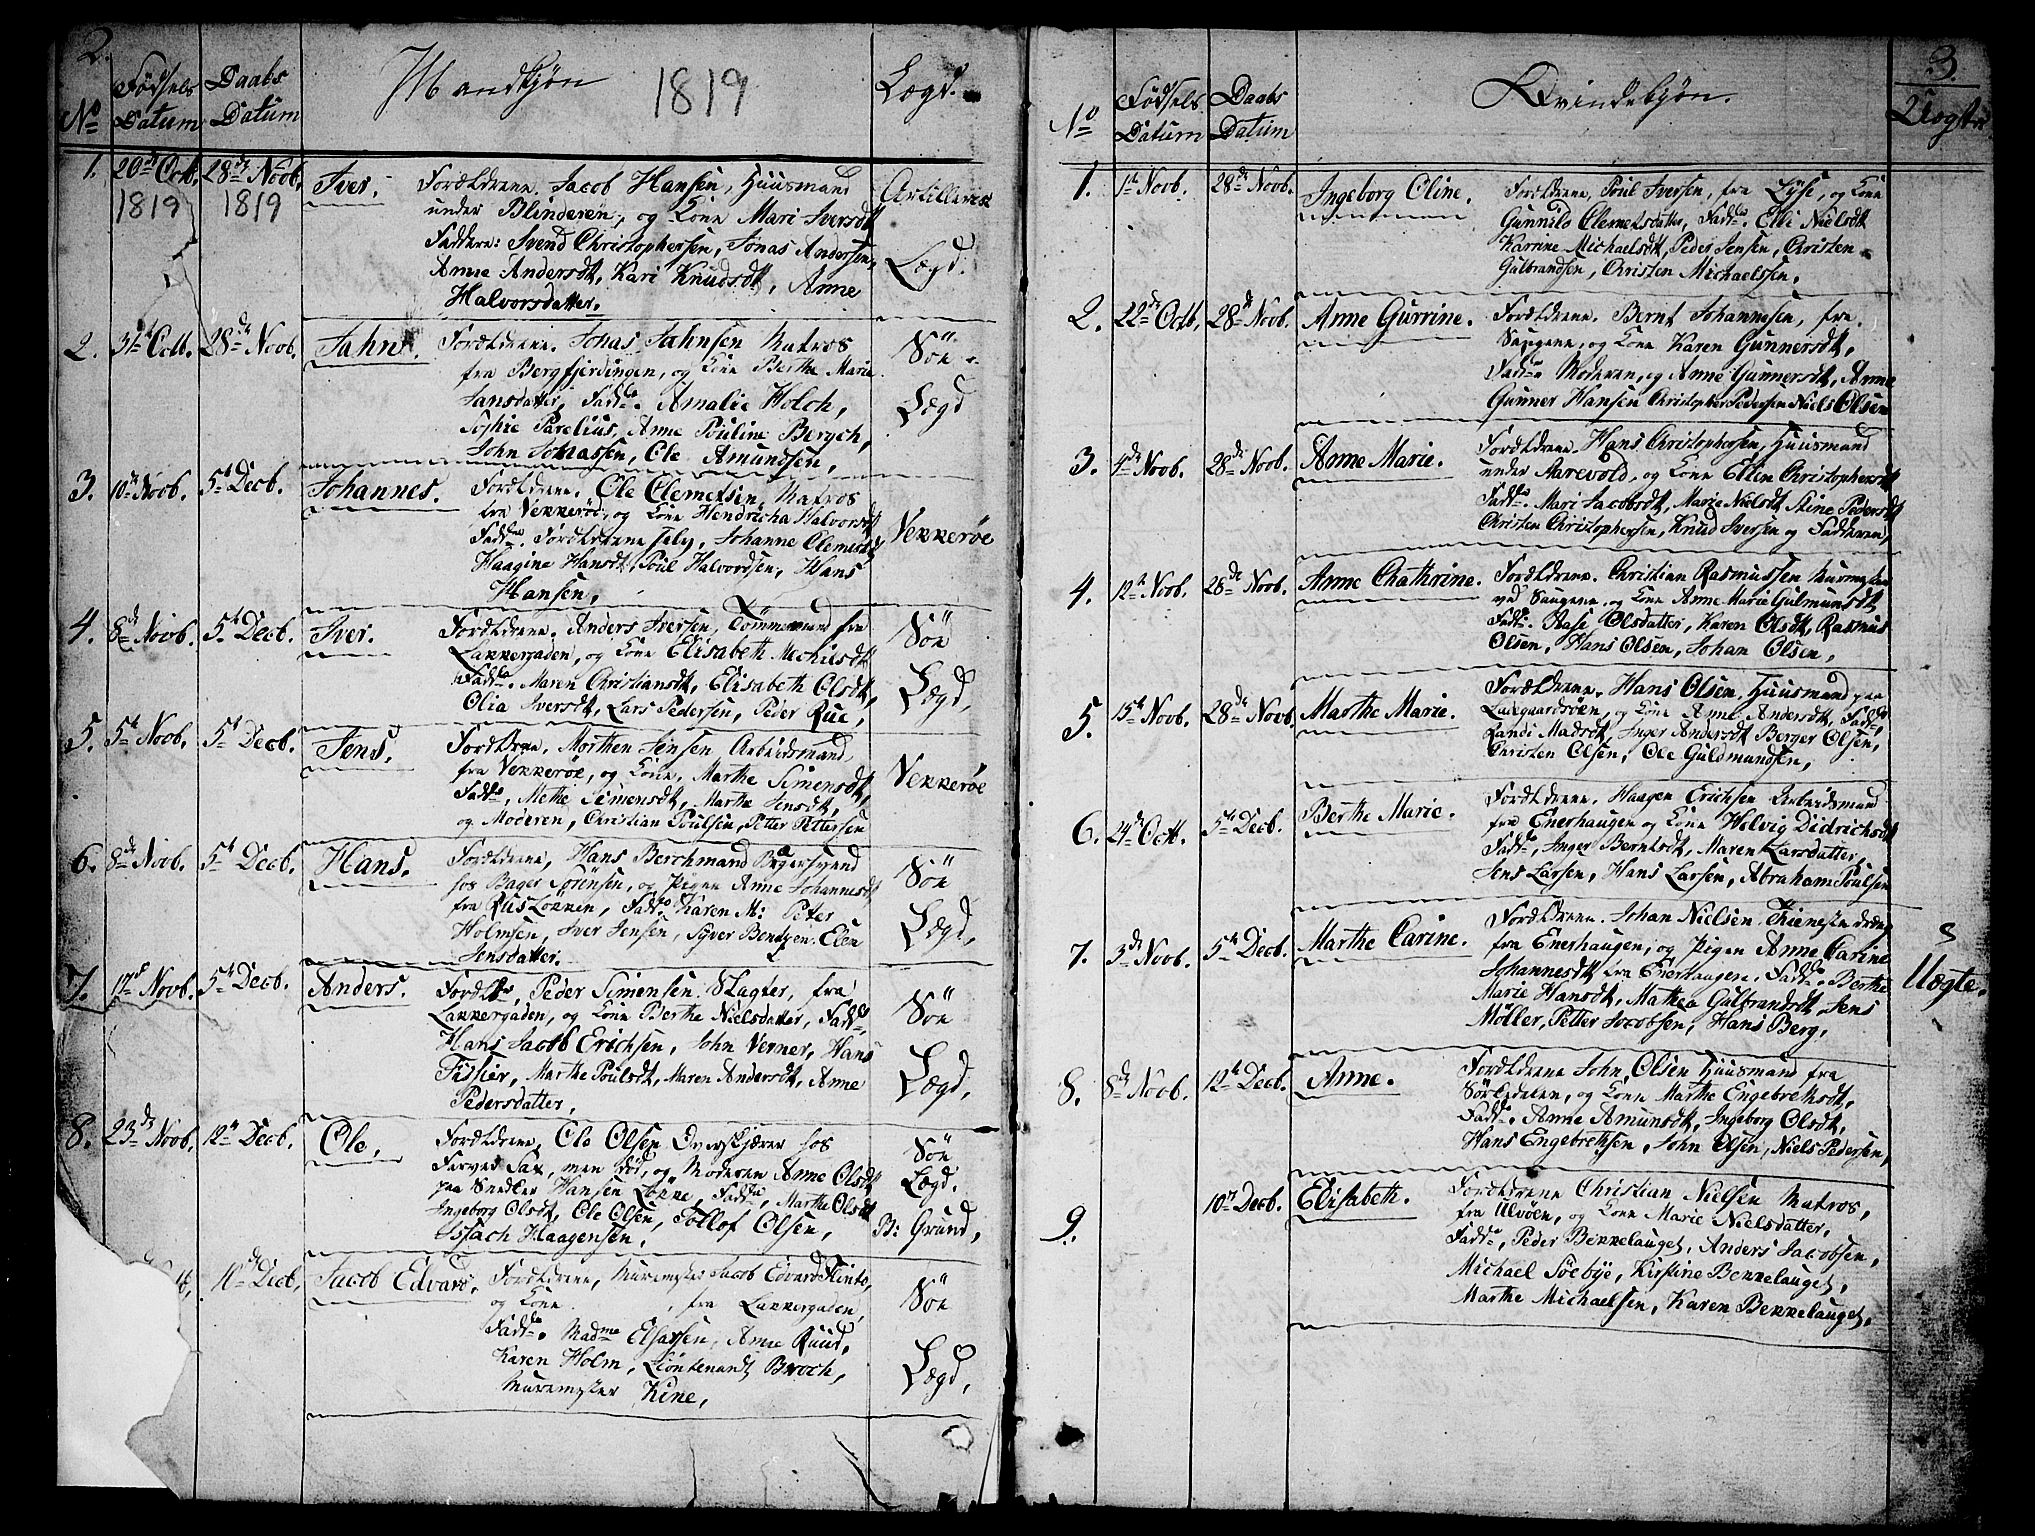 2.
No
Fødsels Datum
Daabs Datum
Mandkjøn 1819
Lægd.
1. 20de Octb. 1819 28de Novb. 1819 Iver.
Forældrene. Jacob Hansen, Huusmand
under Blinderen, og Kone Mari Iversdt
Faddere: Svend Christophersen, Jonas Andersen,
Anne Andersdt, Kari Knudsdt, Anne
Halvorsdatter.
Artillerie
Lægd.
2. 31te Octb. 28de Novb. Jahn.
Forældrene. Jonas Jahnsen Matros
fra Bergfjerdingen, og Kone Berthe Marie
Jansdatter, Fadde. Amalie Holch,
Sophie Parelius, Anne Pouline Bergch,
John Jonassen, Ole Amundsen,
Söe-
Lægd
3. 10de Novb. 5te Decb. Johannes.
Forældrene. Ole Clemetsen, Matros
fra Vækkerøe, og Kone Hendricha Halvorsdt
Fadde. Forældrene selv, Johanne Clemetsdt,
Haagine Hansdt, Poul Halvordsen, Hans
Hansen,
Vekkerøe
4. 8de Novb. 5te Decb. Iver.
Forældrene. Anders Iversen, Tömmermand fra
Lakkergaden, og Kone Elisabeth Michelsdt
Fadde. Maren Christiansdt, Elisabeth Olsdt,
Olia Iversdt, Lars Pedersen, Peder Rue,
Söe
Lægd,
5. 5te Novb. 5te Decb. Jens.
Forældrene. Morthen Jensen Arbeidsmand
fra Vekkerøe, og Kone, Marthe Simensdt,
Fadde, Methe Simensdt, Marthe Jensdt,
og Moderen, Christian Poulsen, Petter Pettersen
Vekkerøe
6. 8de Novb. 5te Decb. Hans.
Forældrene, Hans Berchmand Bagersvend
hos Bager Sørensen, og Pigen Anne Johannesdt
fra Rusløkken, Fadde Karen M: Peter
Holmsen, Iver Jensen, Syver Bentzen. Elen
Jensdatter.
Söe
Lægd,
7. 17de Novb. 5te Decb. Anders.
Forælde, Peder Simensen Slagter, fra
Lakkergaden, og Kone Berthe Nielsdatter, Fadde,
Hans Jacob Erichsen, John Verner, Hans
Fisher, Marthe Poulsdt, Maren Andersdt, Anne
Pedersdatter,
Söe
Lægd,
8. 23de Novb. 12te Decb. Ole,
Forældrene, Ole Olsen Overskjærer hos
Farver Sax, men død, og Moderen Anne Olsdt
paa Snedker Hansens Løkke, Fadde, Marthe Olsdt
Ingeborg Olsdt, Ole Olsen, Tollof Olsen,
Issach Haagensen,
Söe
Lægd.
B: Grund,
Decb, Jacob Edvard,
Forældrene, Muremester Jacob Edvard Flinto,
og Kone , fra Lakkergaden,
Fadde. Madme Elsassen, Anne Ruud,
Karen Holm, Lieutenandt Broch,
Muremester Kine,
Söe
Lægd,
3.
No
Fødsels Datum
Daabs Datum
Qvindekjøn.
Uægte
1. 1te Novb. 28de Novb. Ingeborg Oline.
Forældrene, Poul Iversen, fra Lyse, og Kone
Gunnild Clemetsdatter, Fadde. Elie Nielsdt
Karine Michaelsdt, Peder Jensen, Christen
Gulbrandsen, Christen Michaelssen.
2. 22de Octb, 28de Novb. Anne Gurrine.
Forældrene. Bernt Johannesen, fra
Saugene, og Kone Karen Gunnersdt,
Fadde Moderen, og Anne Gunnersdt, Anne
Gunner Hansen Christopher Pedersen Niels Olsen
3. 4de Novb. 28de Novb. Anne Marie.
Forældrene. Hans Christophersen, Huusmand
under Aarevold, og Kone Ellen Christophersdt
Fadde. Mari Jacobsdt, Marie Nielsdt, Stine Pedersdt
Christen Christophersen, Knud Iversen og Fadderen,
4. 12te Novb. 28de Novb. Anne Chathrine.
Forældrene. Christian Rasmussen Murmester
ved Saugene. og Kone Anne Marie Gulmunsdt
Fadde. Aase Olsdatter, Karen Olsdt, Rasmus
Olsen, Hans Olsen, Johan Olsen,
5. 15te Novb. 28de Novb. Marthe Marie.
Forældrene. Hans Olsen, Huusmand paa
Laugaardsøen, og Kone Anne Andersdt, Fadde,
Randi Madsdt, Inger Andersdt Berger Olsen,
Christen Olsen, Ole Guldmundsen,
6. 24de Octb. 5te Decb. Berthe Marie.
Forældrene. Haagen Erichsen Arbeidsmand
fra Enerhaugen og Kone Helvig Didrichsdt
Fadde, Inger Berntsdt, Maren Larsdatter,
Jens Larsen, Hans Larsen, Abraham Poulsen
7. 3de Novb. 5te Decb. Marthe Carine.
Forældrene. Johan Nielsen Tieneste dreng
fra Enerhaugen, og Pigen Anne Carine
Johannesdt fra Enerhaugen, Fadde. Berthe
Marie Hansdt, Mathea Gulbrandsdt, Jens
Møller, Petter Jacobsen, Hans Berg,
Uægte.
8. 8de Novb. 12te Decb. Anne.
Forældrene John Olsen Huusmand fra
Sørkedalen, og Kone Marthe Engebrethsdt,
Fadde, Anne Amunsdt, Ingeborg Olsdt,
Hans Engebrethsen, John Olsen, Niels Pedersen,
9. Decb. Elisabeth.
Forældrene Christian Nielsen Matros,
fra Ulvøen, og Kone Marie Nielsdatter,
Fadde, Peder Bekkelauget, Anders Jacobsen,
Michael Søebye, Kirstine Bekkelauget,
Marthe Michaelsen, Karen Bekkelauget,